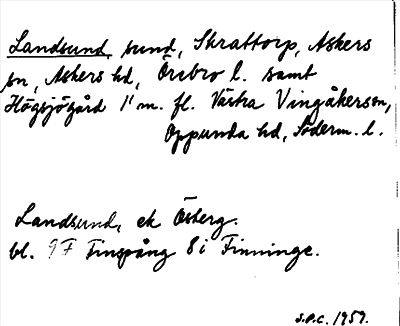 Landsund, sund, Skrattorp, Askers
sn, Askers hd, Örebro l. samt
Högsjögård 1¹ m. fl. Västra Vingåkers sn,
Oppunda hd, Söderm. l.
Landsund, ek Österg.
bl. 9F Finspång 8i Finninge.
S.P.C. 1959.